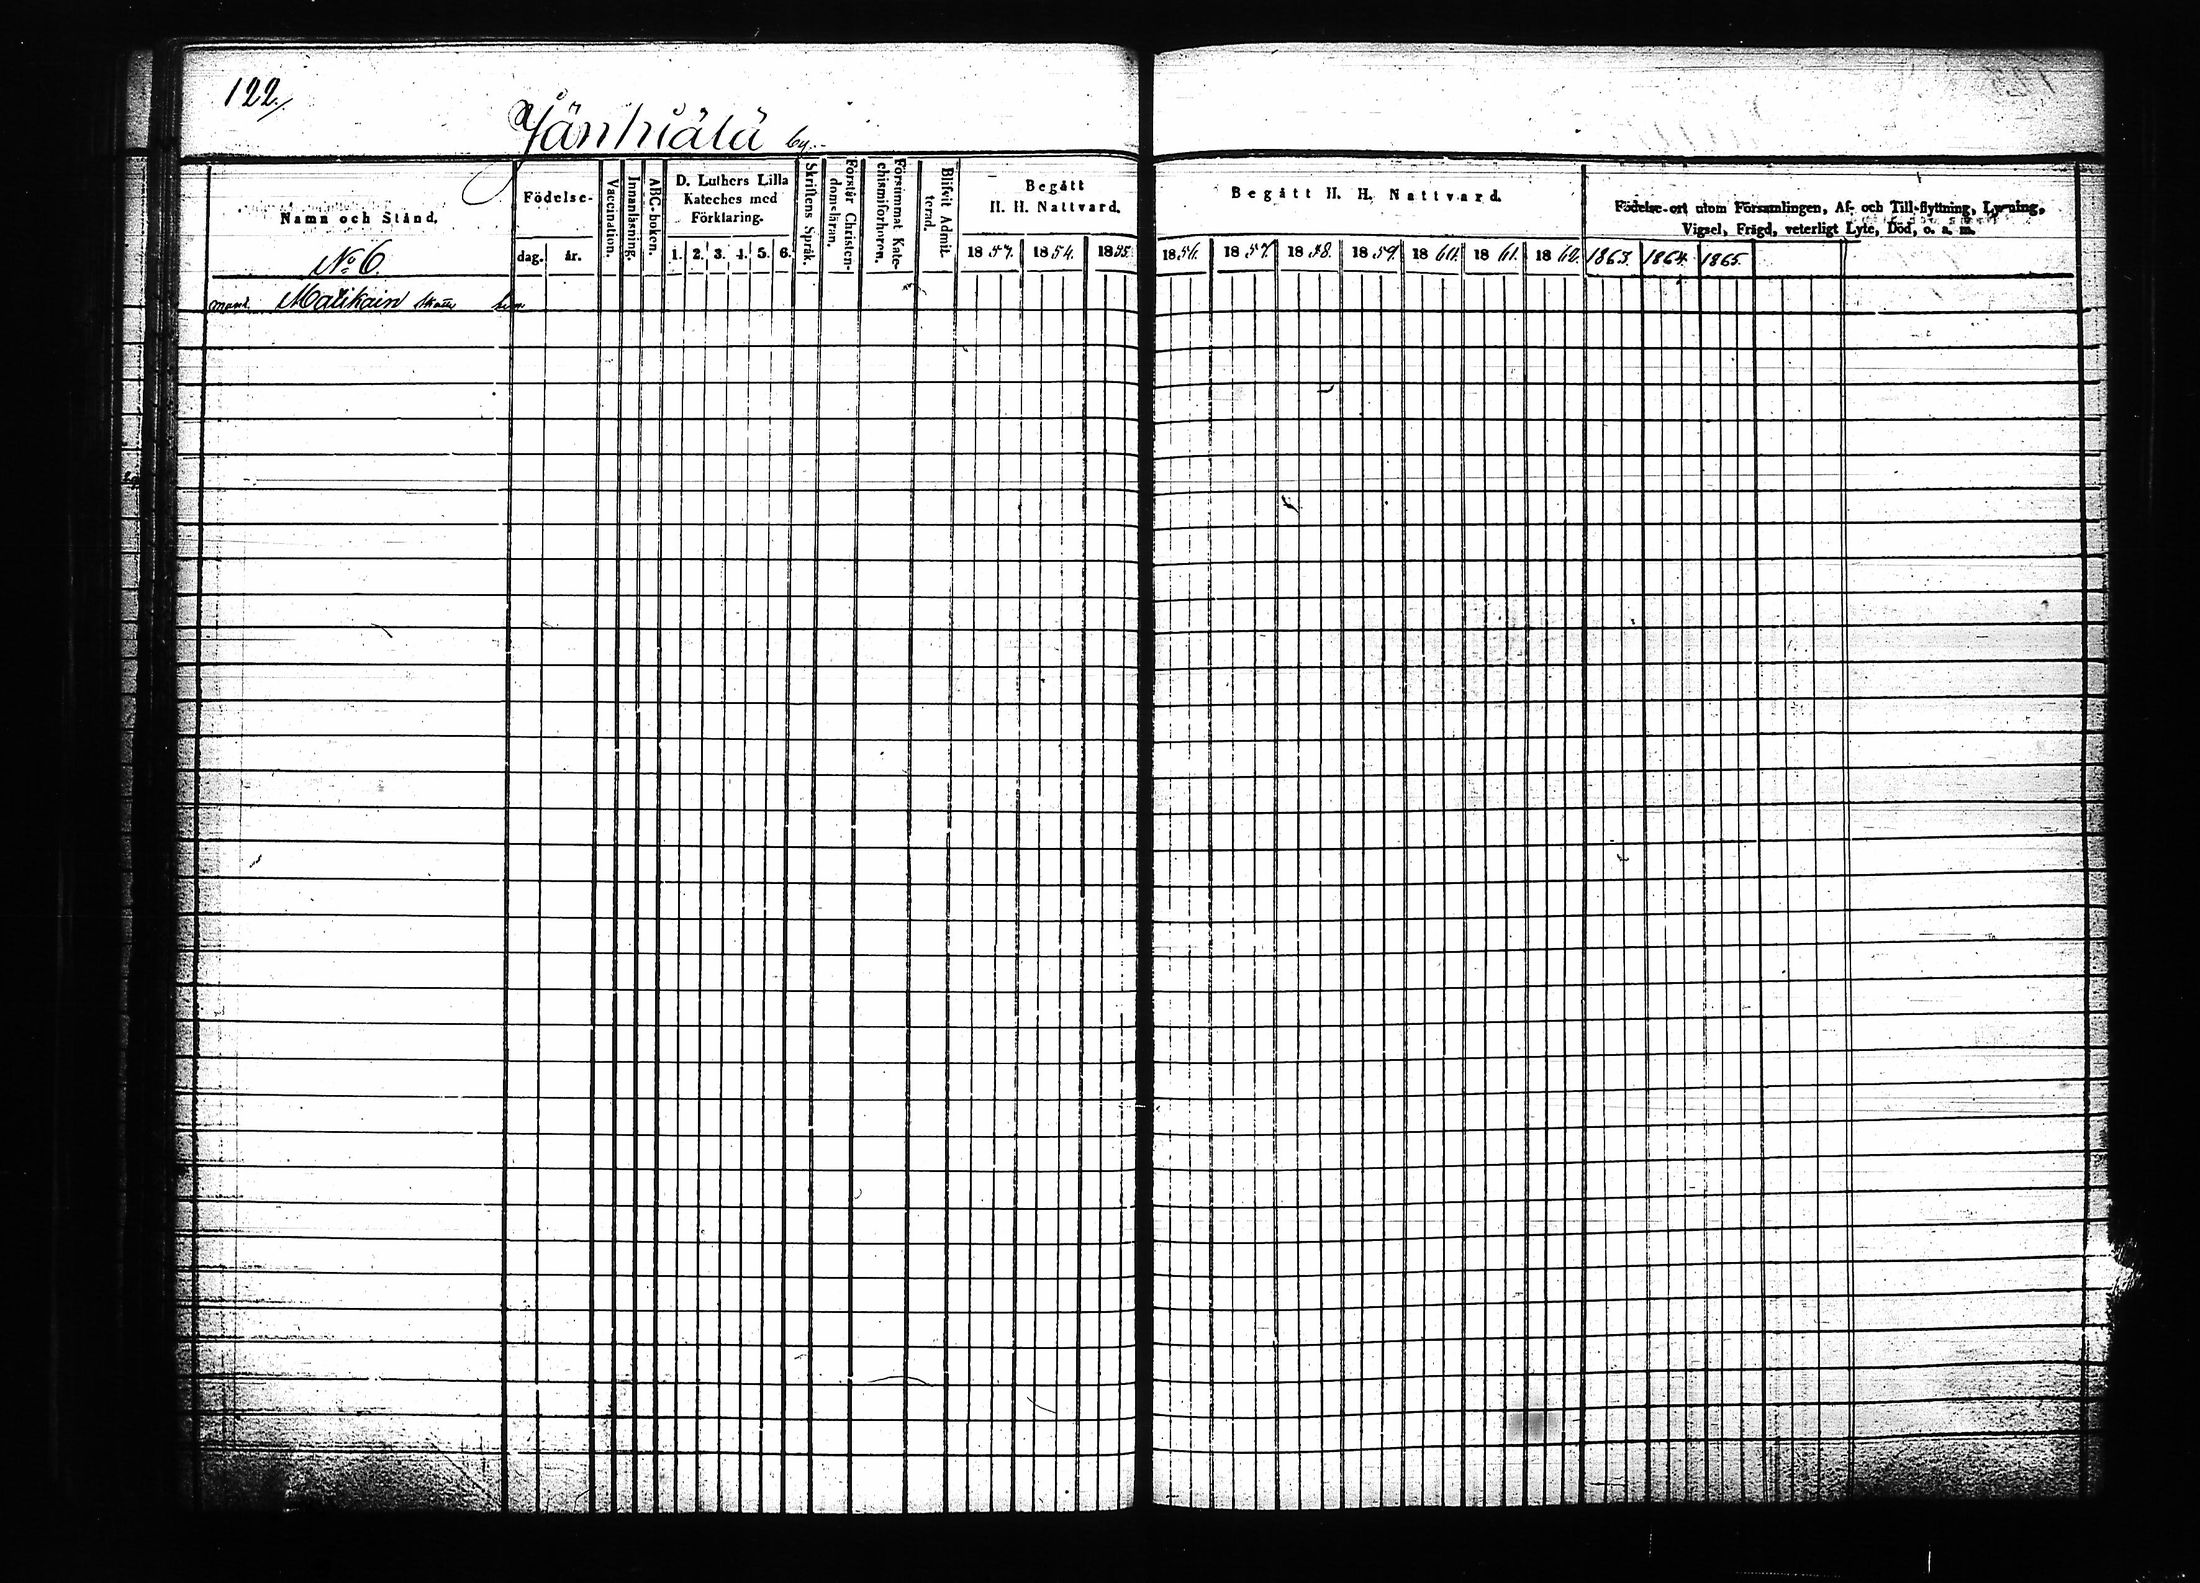 122.
Jänhiälä by.
Namn och Stånd.
Födelse-
dag. år.
Vaccinationen.
Innanläsning.
ABC-boken.
D. Luthers Lilla
Kateches med
Förklaring.
1. 2. 3. 4. 5. 6.
Skriftens Språk.
Förstår Christen-
domsläran.
Försummat Kate-
chismiförhören.
Blifvit Admit-
terad.
Begått
H. H. Nattvard.
1854. 1855.
Begått H. H. Nattvard.
1856. 1857. 1858. 1859. 1860. 1861. 1862. 1863. 1864. 1865.
Födelse-ort utom Församlingen, Af- och Till-flyttning, Lysning,
Vigsel, Frägd, veterligt Lyte, Död, o. s. m.
No 6.
Matikain